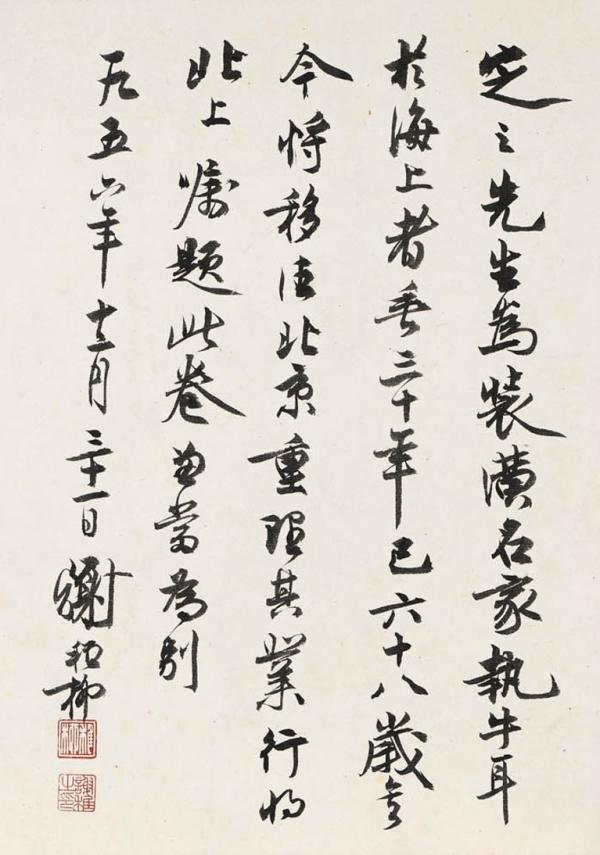 定之先生為裝潢名家執牛耳
於海上者垂三十年已六十八歲矣
今將移住北京重理其業行將
北上囑題此卷當為別
一九五六年十二月三十一日謝稚柳
稚柳
謝稚之印